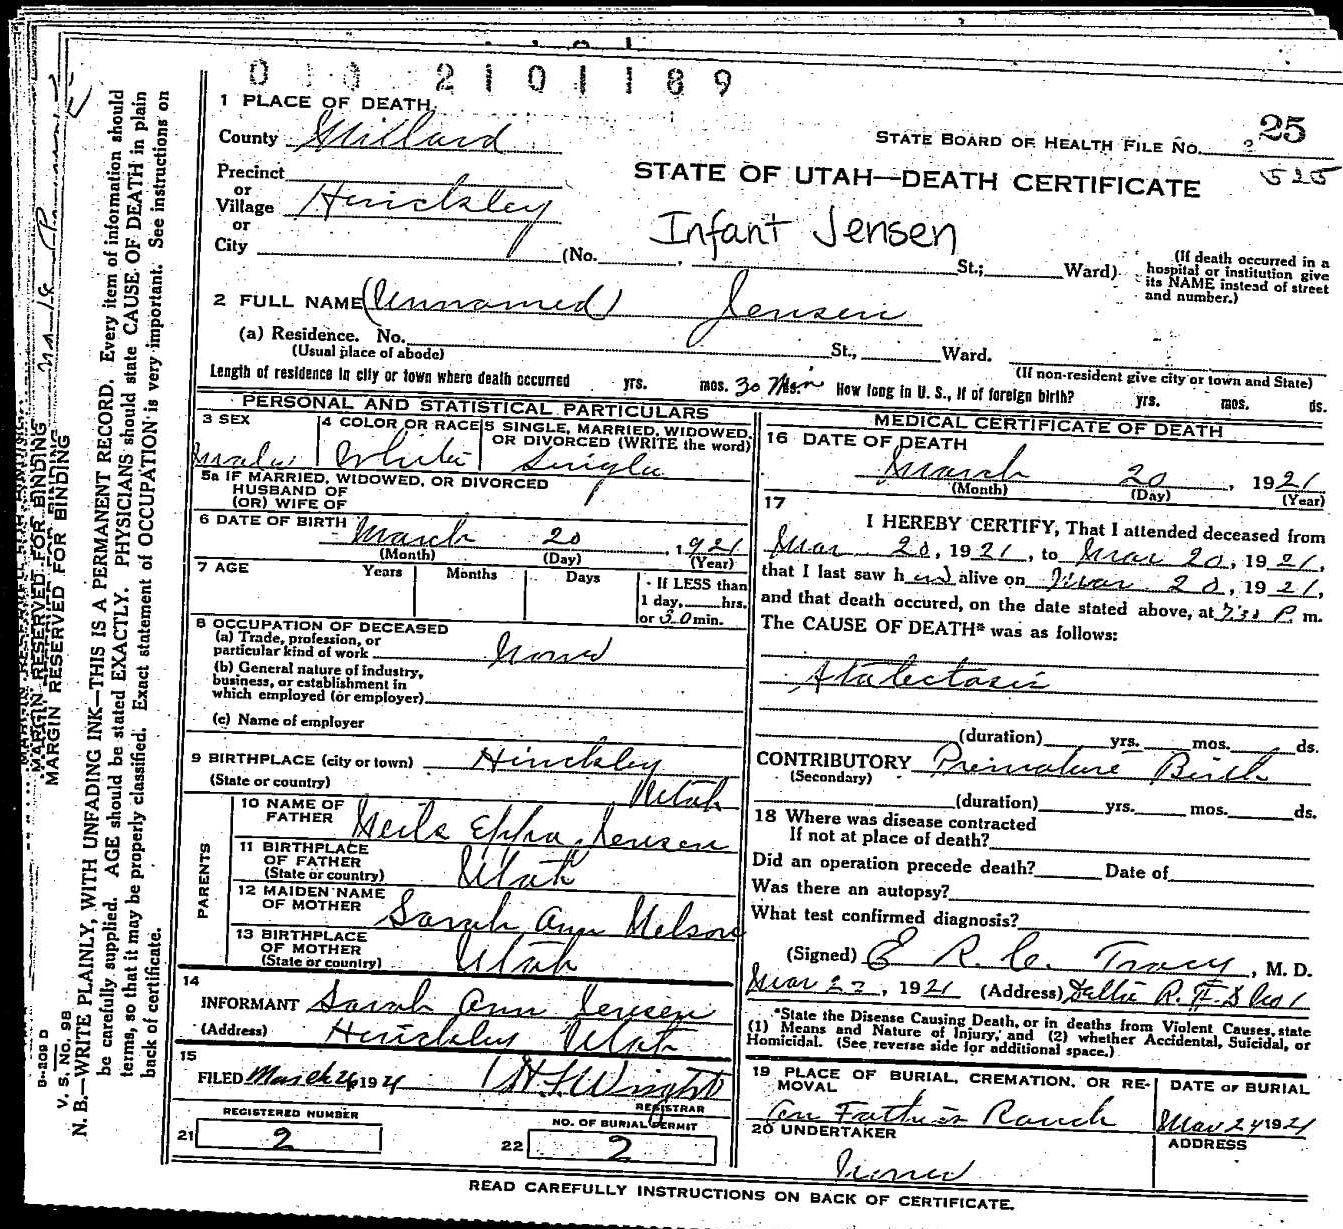 0 1 0 2 1 0 1 1 8 9
1 PLACE OF DEARTH
County Millard
STATE BOARD OF HEALTH FILE NO. 25
525
Precinct
or
Village Hinckley
or
City
STATE OF UTAH—DEATH CERTIFICATE
Infant Jensen
(No. , St.; Ward)
(If death occurred in a
hospital or institution give
its NAME instead of street
and number.)
2 FULL NAME (Unnamed) Jensen
(a) Residence. No. St., Ward.
(Usual place of abode) (If non-resident give city or town and State)
Length of residence in city or town where death occurred yrs. mos. 30 Min How long in U. S., if of foreign birth? yrs. mos. ds.
PERSONAL AND STATISTICAL PARTICULARS
3 SEX 4 COLOR OR RACE 5 SINGLE, MARRIED, WIDOWED,
OR DIVORCED (WRITE the word)
Male White Single
5a IF MARRIED, WIDOWED, OR DIVORCED
HUSBAND OF
(OR) WIFE OF
6 DATE OF BIRTH March 20, 1921
(Month) (Day) (Year)
7 AGE Years Months Days If LESS than
1 day, hrs.
or 30 min.
8 OCCUPATION OF DECEASED
(a) Trade, profession, or
particular kind of work None
(b) General nature of industry,
business, or establishment in
which employed (or employer)
(c) Name of employer
9 BIRTHPLACE (city or town) Hinckley
(State or country) Utah
PARENTS
10 NAME OF
FATHER Neils Epha Jensen
11 BIRTHPLACE
OF FATHER
(State or country) Utah
12 MAIDEN NAME
OF MOTHER Sarah Ann Nelson
13 BIRTHPLACE
OF MOTHER
(State or country) Utah
14
INFORMANT Sarah Ann Jensen
(Address) Hinckley Utah
15
FILED March 26 1921 Wright
REGISTRAR
REGISTERED NUMBER
21 2
NO. OF BURIAL PERMIT
22 2
MEDICAL CERTIFICATE OF DEATH
16 DATE OF DEATH
March 20, 1921
(Month) (Day) (Year)
17
I HEREBY CERTIFY, That I attended deceased from
Mar 20, 1921, to Mar 20, 1921,
that I last saw h alive on Mar 20, 1921,
and that death occured, on the date stated above, at 7:30 P. m.
The CAUSE OF DEATH* was as follows:
Atalectasis
(duration) yrs. mos. ds.
CONTRIBUTORY Premature Birth
(Secondary)
(duration) yrs. mos. ds.
18 Where was disease contracted
If not at place of death?
Did an operation precede death? Date of
Was there an autopsy?
What test confirmed diagnosis?
(Signed) E R. C. Tracy, M. D.
Mar 22, 1921 (Address)
*State the Disease Causing Death, or in deaths from Violent Causes, state
(1) Means and Nature of Injury, and (2) whether Accidental, Suicidal, or
Homicidal. (See reverse side for additional space.)
19 PLACE OF BURIAL, CREMATION, OR RE-
MOVAL
DATE OF BURIAL
On Fathers Ranch Mar 24 1921
20 UNDERTAKER ADDRESS
None
READ CAREFULLY INSTRUCTIONS ON BACK OF CERTIFICATE.
MARGIN RESERVED FOR BINDING
MARGIN RESERVED FOR BINDING
B-209 D
V. S. No. 98
N. B.—WRITE PLAINLY, WITH UNFADING INK—THIS IS A PERMANENT RECORD. Every item of information should
be carefully supplied. AGE should be stated EXACTLY. PHYSICIANS should state CAUSE OF DEATH in plain
terms, so that it may be properly classified. Exact statement of OCCUPATION is very important. See instructions on
back of certificate.